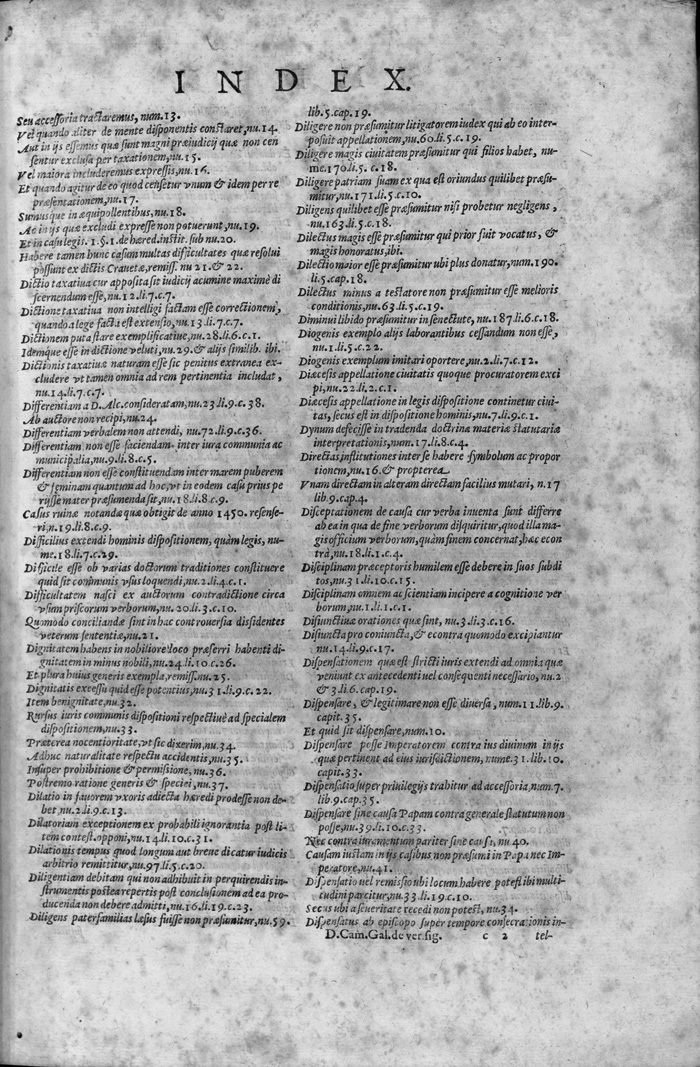 INDEX.
Seu accessoria tractaremus, num.13.
Vel quando aliter de mente disponentis constaret, nu.14.
Aut in ijs essemus quæ sunt magni præiudicij quæ non cen
sentur exclusa per taxationem, nu.15.
Vel maiora includeremus expressis, nu.16.
Et quando agitur de eo quod censetur vnum & idem per re
præsentationem, nu.17.
Sumusque in æquipollentibus, nu.18.
Ac in ijs quæ excludi expresse non potuerunt, nu.19.
Et in casu legis. 1.§.1.de hæred.instit. sub nu.20.
Habere tamen hunc casum multas difficultates quæ resolui
possunt ex dictis Crauetæ, remiss. nu 21.& 22.
Dictio taxatiua cur apposita sit iudicij acumine maximè di
scernendum esse, nu.12.li.7.c.7.
Dictione taxatiua non intelligi factam esse correctionem,
quando a lege facta est extensio, nu.13.li.7.c.7.
Dictionem puta stare exemplificatiuè, nu.28.li.6.c.1.
Idemque esse in dictione veluti, nu.29.& alijs similib. ibi.
Dictionis taxatiuæ naturam esse sic penitus extranea ex-
cludere vt tamen omnia ad rem pertinentia includat,
nu.14.li.7.c.7.
Differentiam a D. Alc.consideratam, nu.23.li.9.c.38.
Ab auctore non recipi, nu.24.
Differentiam verbalem non attendi, nu.72.li.9.c.36.
Differentiam non esse faciendam inter iura communia ac
municipalia, nu.9.li.8.c.5.
Differentiam non esse constituendam inter marem puberem
& feminam quantum ad hoc, vt in eodem casu prius pe
rijsse mater præsumenda sit, nu.18.li.8.c.9.
Casus ruinæ notandæ quæ obtigit de anno 1450. resense-
ri, n.19.li.8.c.9.
Difficilius extendi hominis dispositionem, quàm legis, nu-
me.18.li.7.c.29.
Difficile esse ob varias doctorum traditiones constituere
quid sit communis vsus loquendi, nu.2.li.4.c.1.
Difficultatem nasci ex auctorum contradictione circa
vsum priscorum verborum, nu.20.li.3.c.10.
Quomodo conciliandæ sint in hac controuersia dissidentes
veterum sententiæ, nu.21.
Dignitatem habens in nobiliore loco præferri habenti di-
gnitatem in minus nobili, nu.24.li.10.c.26.
Et plura huius generis exempla, remiss.nu.25.
Dignitatis excessu quid esse potentius, nu.31.li.9.c.22.
Item benignitate, nu.32.
Rursus iuris communis dispositioni respectiuè ad specialem
dispositionem, nu.33.
Præterea nocentioritate, vt sic dixerim, nu.34.
Adhuc naturalitate respectu accidentis, nu.35.
Insuper prohibitione & permissione, nu.36.
Postremo ratione generis & speciei, nu.37.
Dilatio in fauorem vxoris adiecta hæredi prodesse non de-
bet, nu.2.li.9.c.13.
Dilatoriam exceptionem ex probabili ignorantia post li-
tem contest.opponi, nu.14.li.10.c.31.
Dilationis tempus quod longum aut breue dicatur iudicis
arbitrio remittitur, nu.97.li.5.c.20.
Diligentiam debitam qui non adhibuit in perquirendis in-
strumentis postea repertis post conclusionem ad ea pro-
ducenda non debere admitti, nu.16.li.19.c.23.
Diligens paterfamilias læsus fuisse non præsumitur, nu.59.
lib.5.cap.19.
Diligere non præsumitur litigatorem iudex qui ab eo inter-
posuit appellationem, nu.60.li.5.c.19.
Diligere magis ciuitatem præsumitur qui filios habet, nu-
me.170.li.5.c.18.
Diligere patriam suam ex qua est oriundus quilibet præsu-
mitur, nu.171.li.5.c.10.
Diligens quilibet esse præsumitur nisi probetur negligens,
nu.163.li.5.c.18.
Dilectus magis esse præsumitur qui prior fuit vocatus, &
magis honoratus, ibi.
Dilectio maior esse præsumitur ubi plus donatur, num.190.
li.5.cap.18.
Dilectus minus a testatore non præsumitur esse melioris
conditionis, nu.63.li.5.c.19.
Diminui libido præsumitur in senectute, nu.187.li.6.c.18.
Diogenis exemplo alijs laborantibus cessandum non esse,
nu.1.li.5.c.22.
Diogenis exemplum imitari oportere, nu.2.li.7.c.12.
Diæcesis appellatione ciuitatis quoque procuratorem exci
pi, nu.22.li.2.c.1.
Diæcesis appellatione in legis dispositione continetur ciui-
tas, secus est in dispositione hominis, nu.7.li.9.c.1.
Dynum defecisse in tradenda doctrina materiæ statutariæ
interpretationis, num.17.li.8.c.4.
Directas institutiones inter se habere symbolum ac propor
tionem, nu.16.& propterea
Vnam directam in alteram directam facilius mutari, n.17
lib.9.cap.4.
Disceptationem de causa cur verba inuenta sunt differre
ab ea in qua de fine verborum disquiritur, quod illa ma-
gis officium verborum, quàm finem concernat, hæc econ
trà, nu.18.li.1.c.4.
Disciplinam præceptoris humilem esse debere in suos subdi
tos, nu.31.li.10.c.15.
Disciplinam omnem ac scientiam incipere a cognitione ver
borum, nu.1.li.1.c.1.
Disiunctiuæ orationes quæ sint, nu.3.li.3.c.16.
Disiuncta pro coniuncta, & econtra quomodo excipiantur
nu.14.li.9.c.17.
Dispensationem quæ est stricti iuris extendi ad omnia quæ
veniunt ex antecedenti uel consequenti necessario, nu.2
& 3.li.6.cap.19.
Dispensare, & legitimare non esse diuersa, num.11.lib.9.
capit.35.
Et quid sit dispensare, num.10.
Dispensare posse Imperatorem contra ius diuinum in ijs
quæ pertinent ad eius iurisdictionem, nume.31.lib.10.
capit.33.
Dispensatio super priuilegijs trahitur ad accessoria, num.7.
lib.9.cap.35.
Dispensare sine causa Papam contra generale statutum non
posse, nu.39.li.10.c.33.
Nec contra iuramentum pariter sine causa, nu 40.
Causam iustam in ijs casibus non præsumi in Papa nec Im-
peratore, nu.41.
Dispensatio uel remissio ubi locum habere potest ibi multi-
tudini parcitur, nu.33.li.19.c.10.
Secus ubi a seueritate recedi non potest, nu.34.
Dispensatus ab episcopo super tempore consecrationis in-
D.Cam.Gal.de ver.sig. c 2 tel-